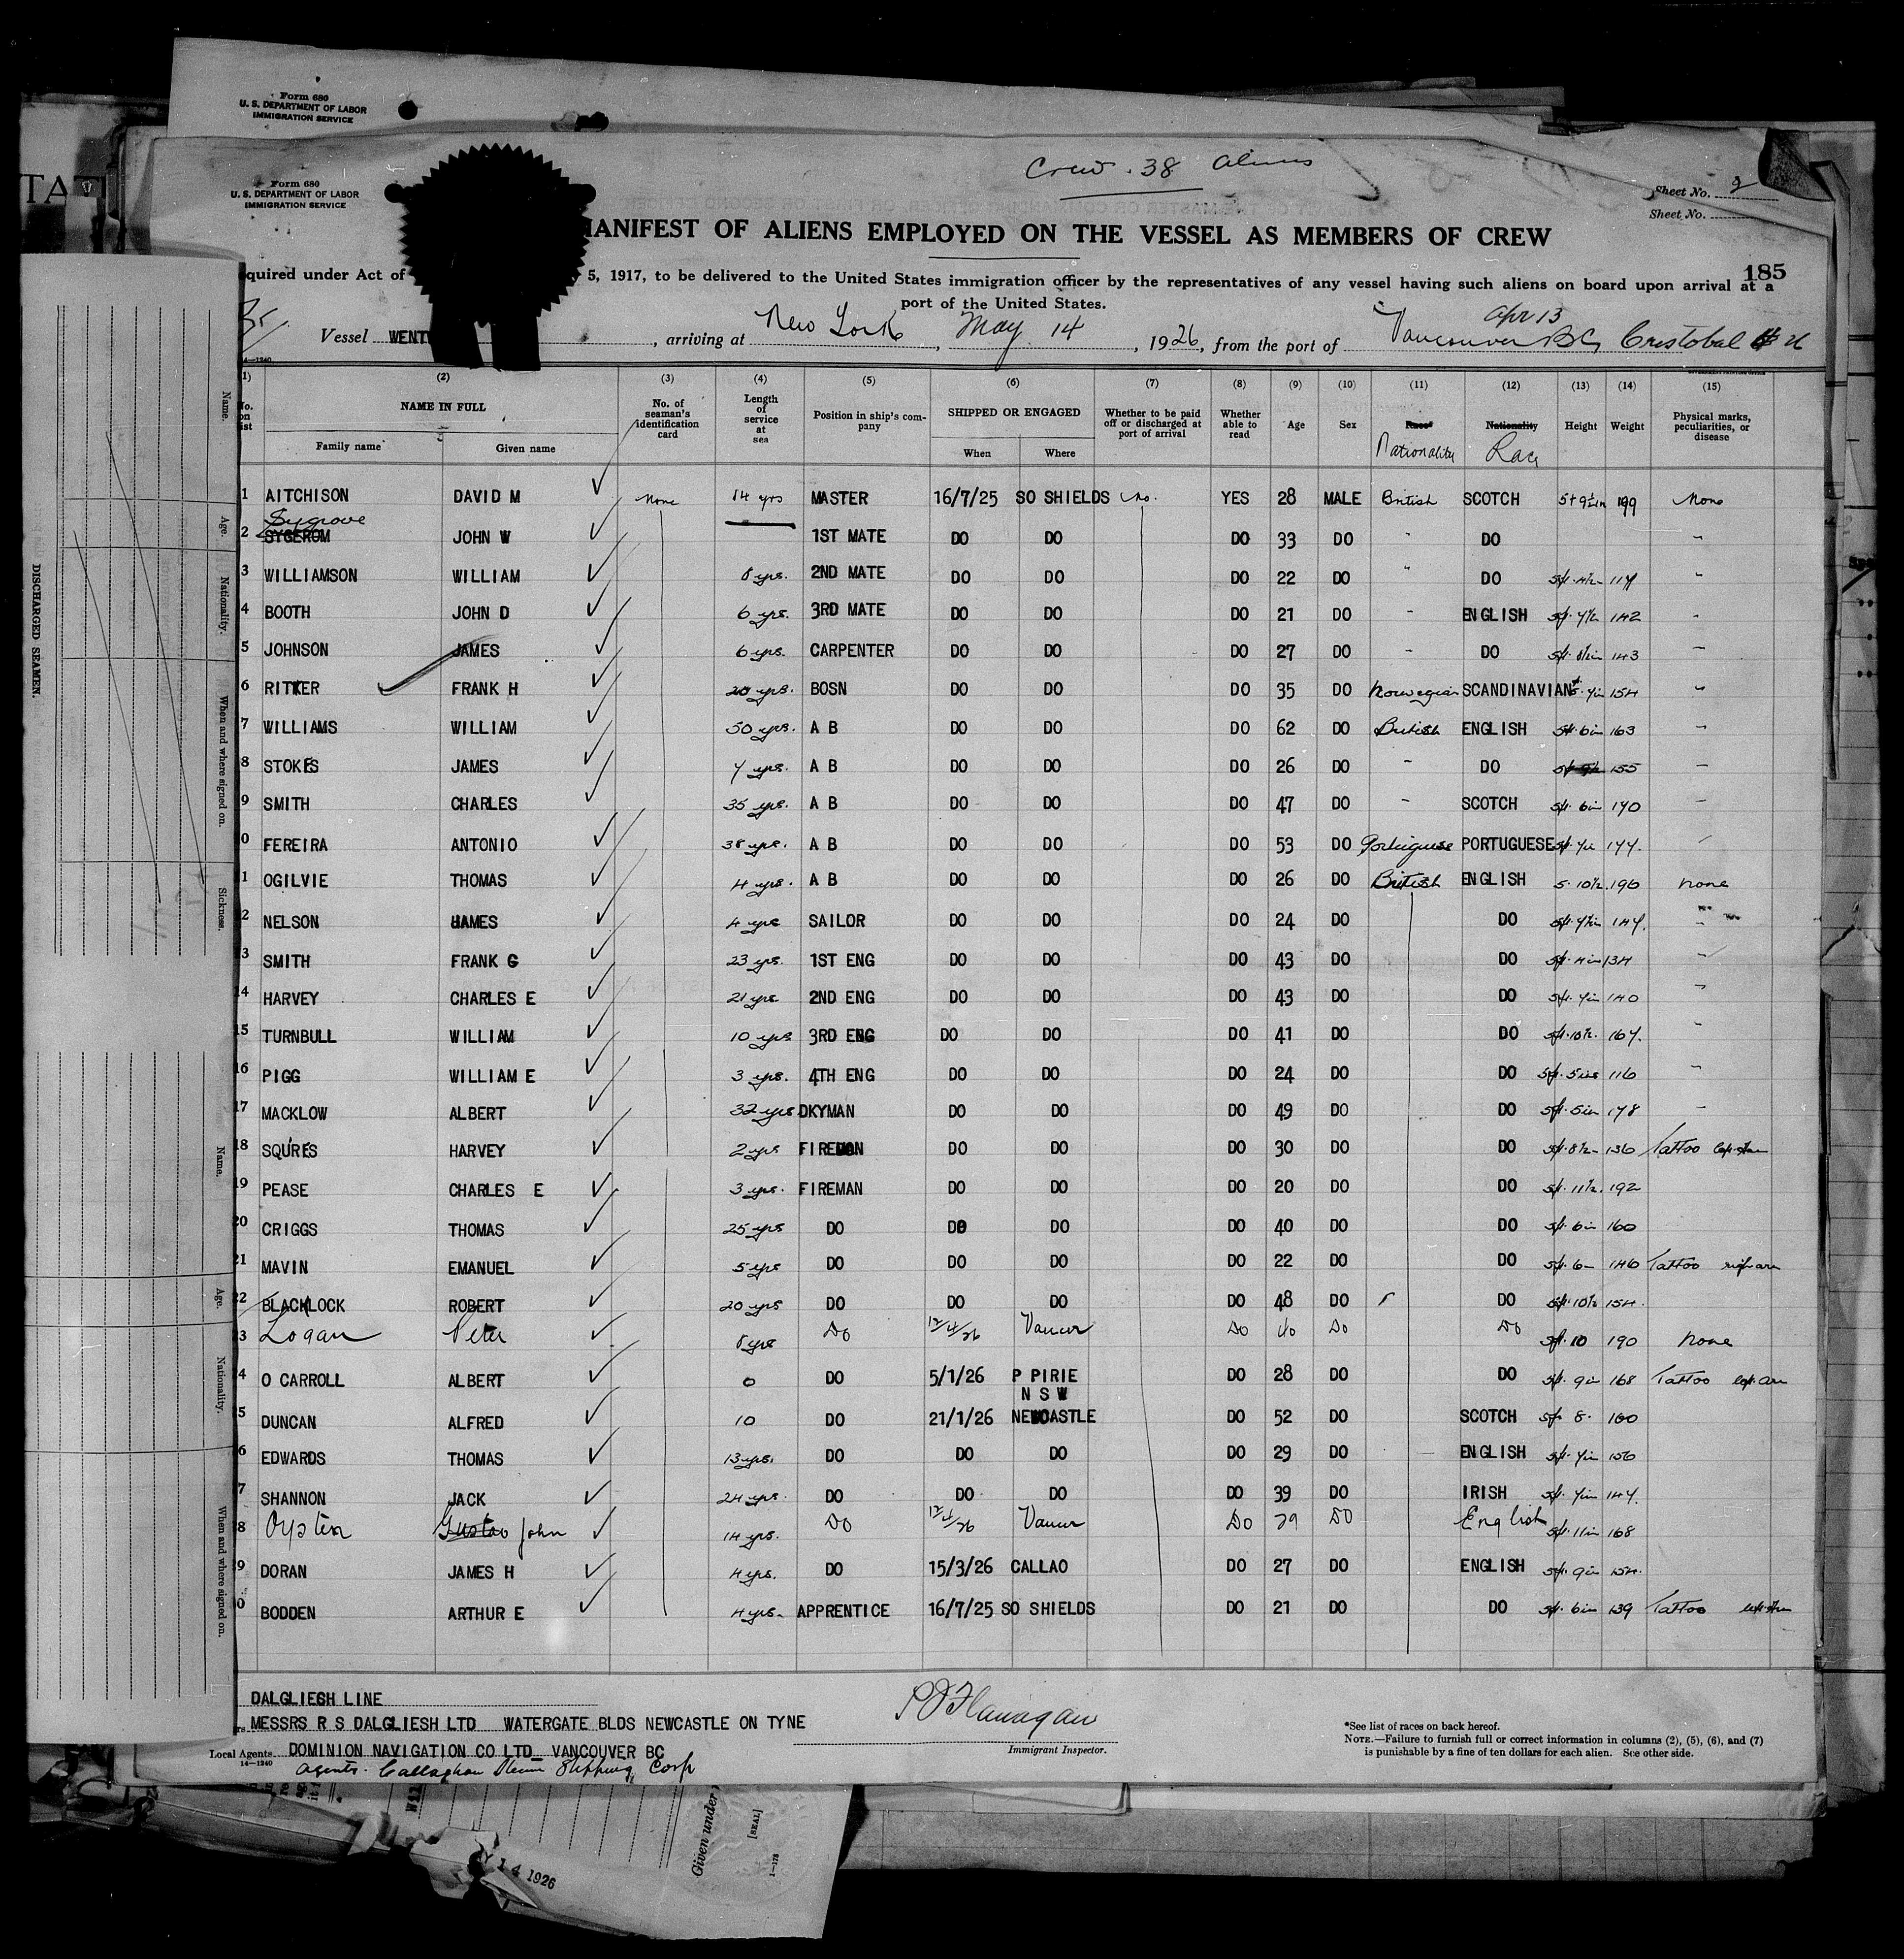 Form 680
U. S. DEPARTMENT OF LABOR
IMMIGRATION SERVICE
Form 680
U. S. DEPARTMENT OF LABOR
IMMIGRATION SERVICE
Crew. 38 aliens
Sheet No. 2
Sheet No.
MANIFEST OF ALIENS EMPLOYED ON THE VESSEL AS MEMBERS OF CREW
185
quired under Act of 5, 1917, to be delivered to the United States immigration officer by the representatives of any vessel having such aliens on board upon arrival at a
port of the United States.
Apr 13
Vessel WENT , arriving at New York , May 14 , 1926, from the port of Vancouver BC, Cristobal
14—1240
(1) (2) (3) (4) (5) (6) (7) (8) (9) (10) (11) (12) (13) (14) (15)
No. on list NAME IN FULL No. of seaman's identification card Length of service at sea Position in ship's company SHIPPED OR ENGAGED Whether to be paid off or discharged at port of arrival Whether able to read Age Sex Race* Nationality Height Weight Physical marks, peculiarities, or disease
Family name Given name When Where Nationality Race
1 AITCHISON DAVID M None 14 yrs MASTER 16/7/25 SO SHIELDS No. YES 28 MALE British SCOTCH 5 ft 9½ in 199 None
Sygrove
2 SYGEROM JOHN W 1ST MATE DO DO DO 33 DO " DO "
3 WILLIAMSON WILLIAM 8 yrs. 2ND MATE DO DO DO 22 DO " DO "
4 BOOTH JOHN D 6 yrs. 3RD MATE DO DO DO 21 DO " ENGLISH 142 "
5 JOHNSON JAMES 6 yrs. CARPENTER DO DO DO 27 DO " DO 143 "
6 RITTER FRANK H 20 yrs. BOSN DO DO DO 35 DO Norwegian SCANDINAVIAN 5 ft. 7 in 154 "
7 WILLIAMS WILLIAM 50 yrs. A B DO DO DO 62 DO British ENGLISH 5 ft 6 in 163 "
8 STOKES JAMES 7 yrs. A B DO DO DO 26 DO " DO 155 "
9 SMITH CHARLES 35 yrs. A B DO DO DO 47 DO " SCOTCH 5 ft. 6 in 170 "
0 FEREIRA ANTONIO 38 yrs. A B DO DO DO 53 DO Portuguese PORTUGUESE 5 ft 7 in 177. "
1 OGILVIE THOMAS 4 yrs. A B DO DO DO 26 DO British ENGLISH 5. 10½. 196 none
2 NELSON JAMES 4 yrs SAILOR DO DO DO 24 DO DO 5 ft. 7½ in 147. "
3 SMITH FRANK G 23 yrs. 1ST ENG DO DO DO 43 DO DO 5 ft. 4 in 134 "
14 HARVEY CHARLES E 21 yrs 2ND ENG DO DO DO 43 DO DO 5 ft. 7 in 140 "
15 TURNBULL WILLIAM 10 yrs 3RD ENG DO DO DO 41 DO DO 5 ft. 10½. 167. "
16 PIGG WILLIAM E 3 yrs. 4TH ENG DO DO DO 24 DO DO 5 ft. 5 ins 116 "
17 MACKLOW ALBERT 32 yrs DKYMAN DO DO DO 49 DO DO 5 ft. 5 in 178 "
18 SQUIRES HARVEY 2 yrs FIREMAN DO DO DO 30 DO DO 5 ft. 8½ 136 Tattoo left arm
19 PEASE CHARLES E 3 yrs. FIREMAN DO DO DO 20 DO DO 5 ft. 11½. 192
20 CRIGGS THOMAS 25 yrs DO DO DO DO 40 DO DO 5 ft 6 in 160
21 MAVIN EMANUEL 5 yrs DO DO DO DO 22 DO DO 5 ft. 6 146 Tattoo right arm
22 BLACKLOCK ROBERT 20 yrs DO DO DO DO 48 DO DO 5 ft. 10½ 154.
3 Logan Peter 8 yrs Do 12/4/26 Vancvr Do 40 Do Do 5 ft. 10 190 none
4 O CARROLL ALBERT 0 DO 5/1/26 P PIRIE DO 28 DO DO 5 ft. 9 in 168 Tattoo left arm
N S W
5 DUNCAN ALFRED 10 DO 21/1/26 NEWCASTLE DO 52 DO SCOTCH 5 ft 8. 160
6 EDWARDS THOMAS 13 yrs. DO DO DO DO 29 DO ENGLISH 5 ft. 7 in 156
7 SHANNON JACK 24 yrs. DO DO DO DO 39 DO IRISH 5 ft. 7 in 147.
8 Oysten Gustav John 14 yrs. Do 12/4/26 Vancvr Do 29 DO English 5 ft. 11 in 168
9 DORAN JAMES H 4 yrs. DO 15/3/26 CALLAO DO 27 DO ENGLISH 5 ft. 9 in 154.
0 BODDEN ARTHUR E 4 yrs. APPRENTICE 16/7/25 SO SHIELDS DO 21 DO DO 5 ft. 6 in 139 Tattoo left arm
DALGLIESH LINE
MESSRS R S DALGLIESH LTD WATERGATE BLDS NEWCASTLE ON TYNE
P J Flanagan
Immigrant Inspector.
Local Agents DOMINION NAVIGATION CO LTD_ VANCOUVER BC
14—1240
agents. Callaghan Shipping Corp
*See list of races on back hereof.
NOTE.—Failure to furnish full or correct information in columns (2), (5), (6), and (7)
is punishable by a fine of ten dollars for each alien. See other side.
DISCHARGED SEAMEN.
Name.
Age.
Nationality.
When and where signed on.
Sickness.
Name.
Age.
Nationality.
When and where signed on.
Given under
[SEAL]
1—173
Y 14 1926